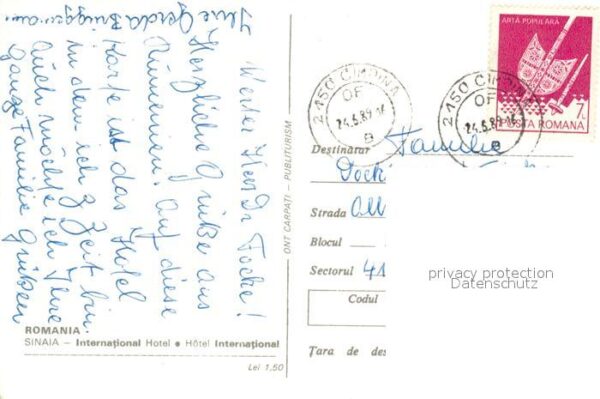 Werter Herr Dr Focke!
Herzliche Grüße aus
Rumänien. Auf diese
Karte ist das Hotel
in dem ich z. Zeit bin.
Auch möchte ich Ihre
ganze Familie grüßen
Ihre Gerda
ROMANIA
SINAIA – International Hotel ● Hôtel International
Lei 1,50
ONT CARPAȚI — PUBLITURISM
ARTĂ POPULARĂ
7L
POSTA ROMANA
2150 CIMPINA
OF
24.5.89.16
2150 CIMPINA
OF
24.5.89.16
Destinatar Familie
Strada
Blocul
Sectorul 41
Codul
Țara de des
privacy protection
Datenschutz